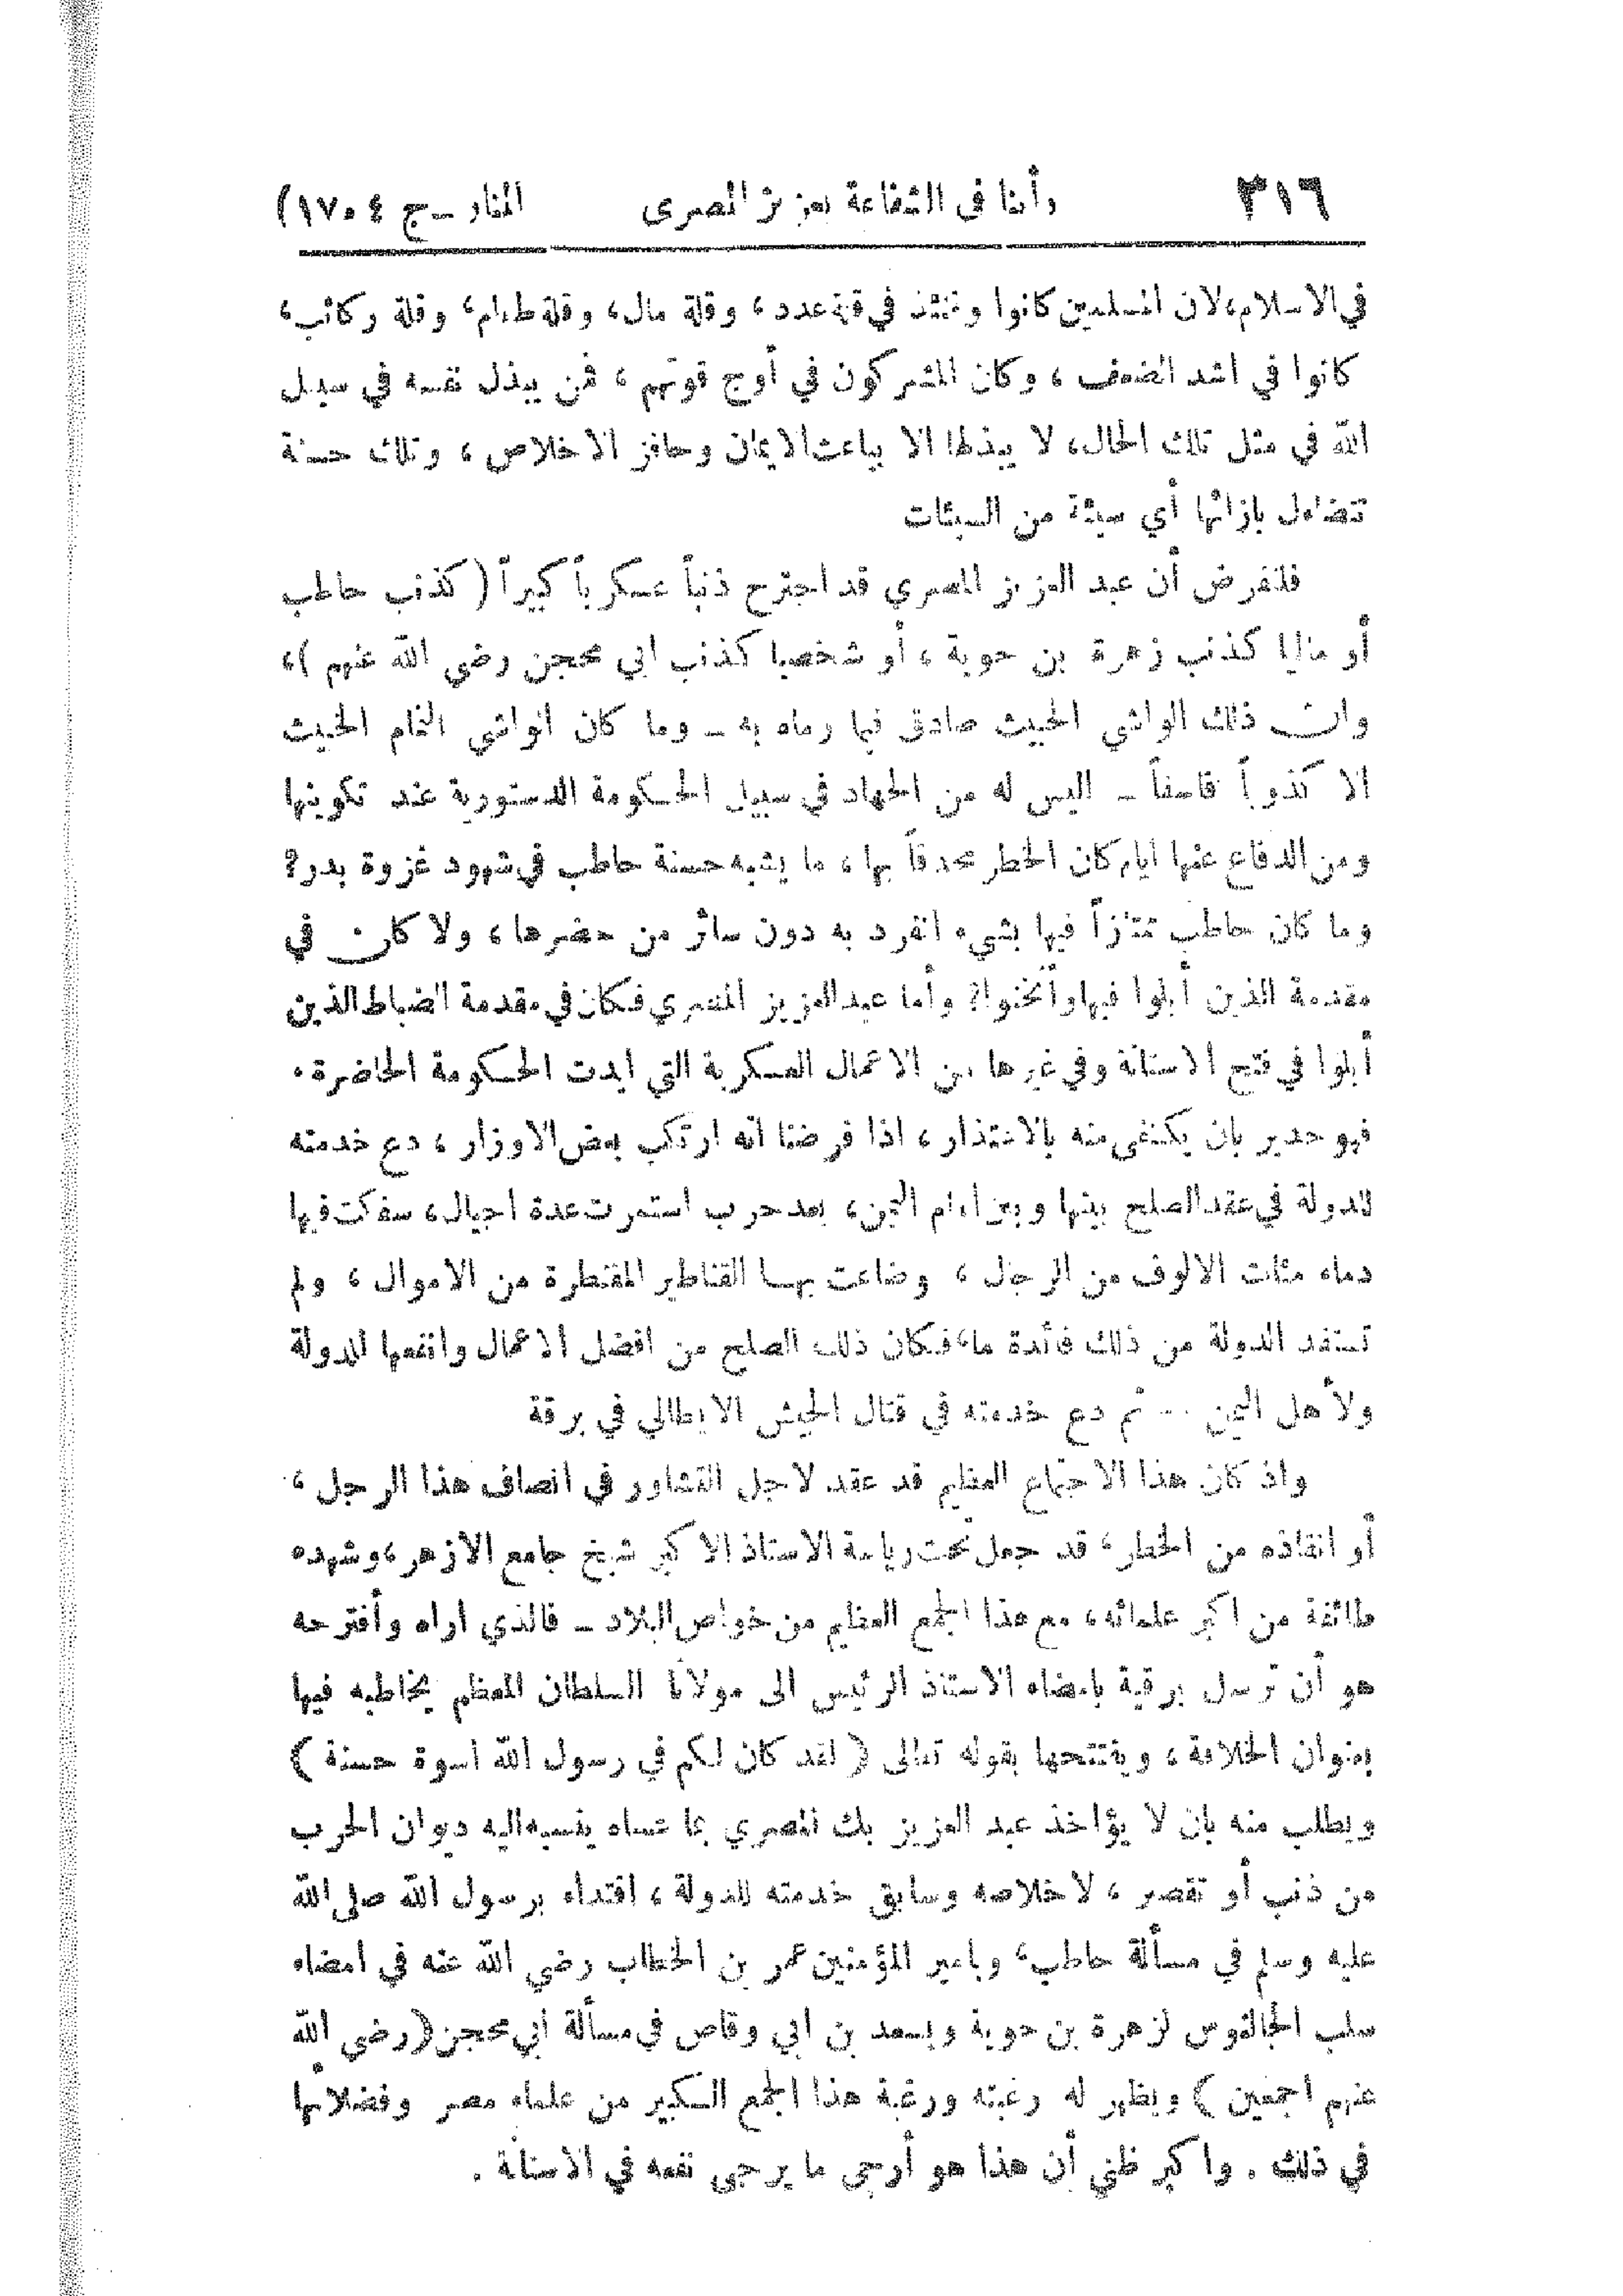 ٣١٦ رأينا فى الشفاعة بعزيز المصرى المنار ـ ج ٤ م ١٧)
في الاسلام، لان المسلمين كانوا وقتئذ في قلة عدد، وقلة مال، وقلة طعام، وقلة ركائب،
كانوا في اشد الضعف، وكان المشركون في أوج قوتهم، فمن يبذل نفسه في سبيل
الله في مثل تلك الحال، لا يبذلها الا بباعث الايمان وحافز الاخلاص، وتلك حسنة
تتضاءل بازائها أي سيئة من السيئات
فلنفرض أن عبد العزيز المصري قد اجترح ذنباً عسكرياً كبيراً ( كذنب حاطب
أو ماليا كذنب زهرة بن حوية، أو شخصيا كذنب ابي محجن رضي الله عنهم )،
وان ذلك الواشي الخبيث صادق فيما رماه به ـ وما كان الواشي النمام الخبيث
الا كذوباً فاسقاً ـ اليس له من الجهاد في سبيل الحكومة الدستورية عند تكوينها
ومن الدفاع عنها ايام كان الخطر محدقاً بها، ما يشبه حسنة حاطب في شهود غزوة بدر؟
وما كان حاطب ممتازاً فيها بشيء انفرد به دون سائر من حضرها، ولا كان في
مقدمة الذين أبلوا فيها وأثخنوا؟ وأما عبد العزيز المصري فكان في مقدمة الضباط الذين
أبلوا في فتح الاستانة وفي غيرها من الاعمال العسكرية التي ايدت الحكومة الحاضرة.
فهو جدير بان يكتفى منه بالاعتذار، اذا فرضنا انه ارتكب بعض الاوزار، دع خدمته
للدولة في عقد الصلح بينها وبين امام اليمن، بعد حرب استمرت عدة اجيال، سفكت فيها
دماء مئات الالوف من الرجال، وضاعت بهـا القناطير المقنطرة من الاموال، ولم
تستفد الدولة من ذلك فائدة ما، فكان ذلك الصلح من افضل الاعمال وانفعها للدولة
ولأهل اليمن ... ثم دع خدمته في قتال الجيش الايطالي في برقة
واذ كان هذا الاجتماع العظيم قد عقد لاجل التشاور في انصاف هذا الرجل،
أو انقاذه من الخطر، قد جعل تحت رياسة الاستاذ الاكبر شيخ جامع الازهر، وشهده
طائفة من اكبر علمائه، مع هذا الجمع العظيم من خواص البلاد ـ فالذي أراه وأقترحه
هو أن ترسل برقية بامضاء الاستاذ الرئيس الى مولانا السلطان المعظم يخاطبه فيها
بعنوان الخلافة، ويفتتحها بقوله تعالى ( لقد كان لكم في رسول الله اسوة حسنة )
ويطلب منه بان لا يؤاخذ عبد العزيز بك المصري بما عساه ينسبه اليه ديوان الحرب
من ذنب أو تقصير، لاخلاصه وسابق خدمته للدولة، اقتداء برسول الله صلى الله
عليه وسلم في مسألة حاطب، وبامير المؤمنين عمر بن الخطاب رضي الله عنه في امضاء
سلب الجالنوس لزهرة بن حوية وبسعد بن ابي وقاص في مسألة أبي محجن (رضي الله
عنهم اجمعين ) ويظهر له رغبته ورغبة هذا الجمع الكبير من علماء مصر وفضلائها
في ذلك. واكبر ظني أن هذا هو أرجى ما يرجى نفعه في الاستانة.